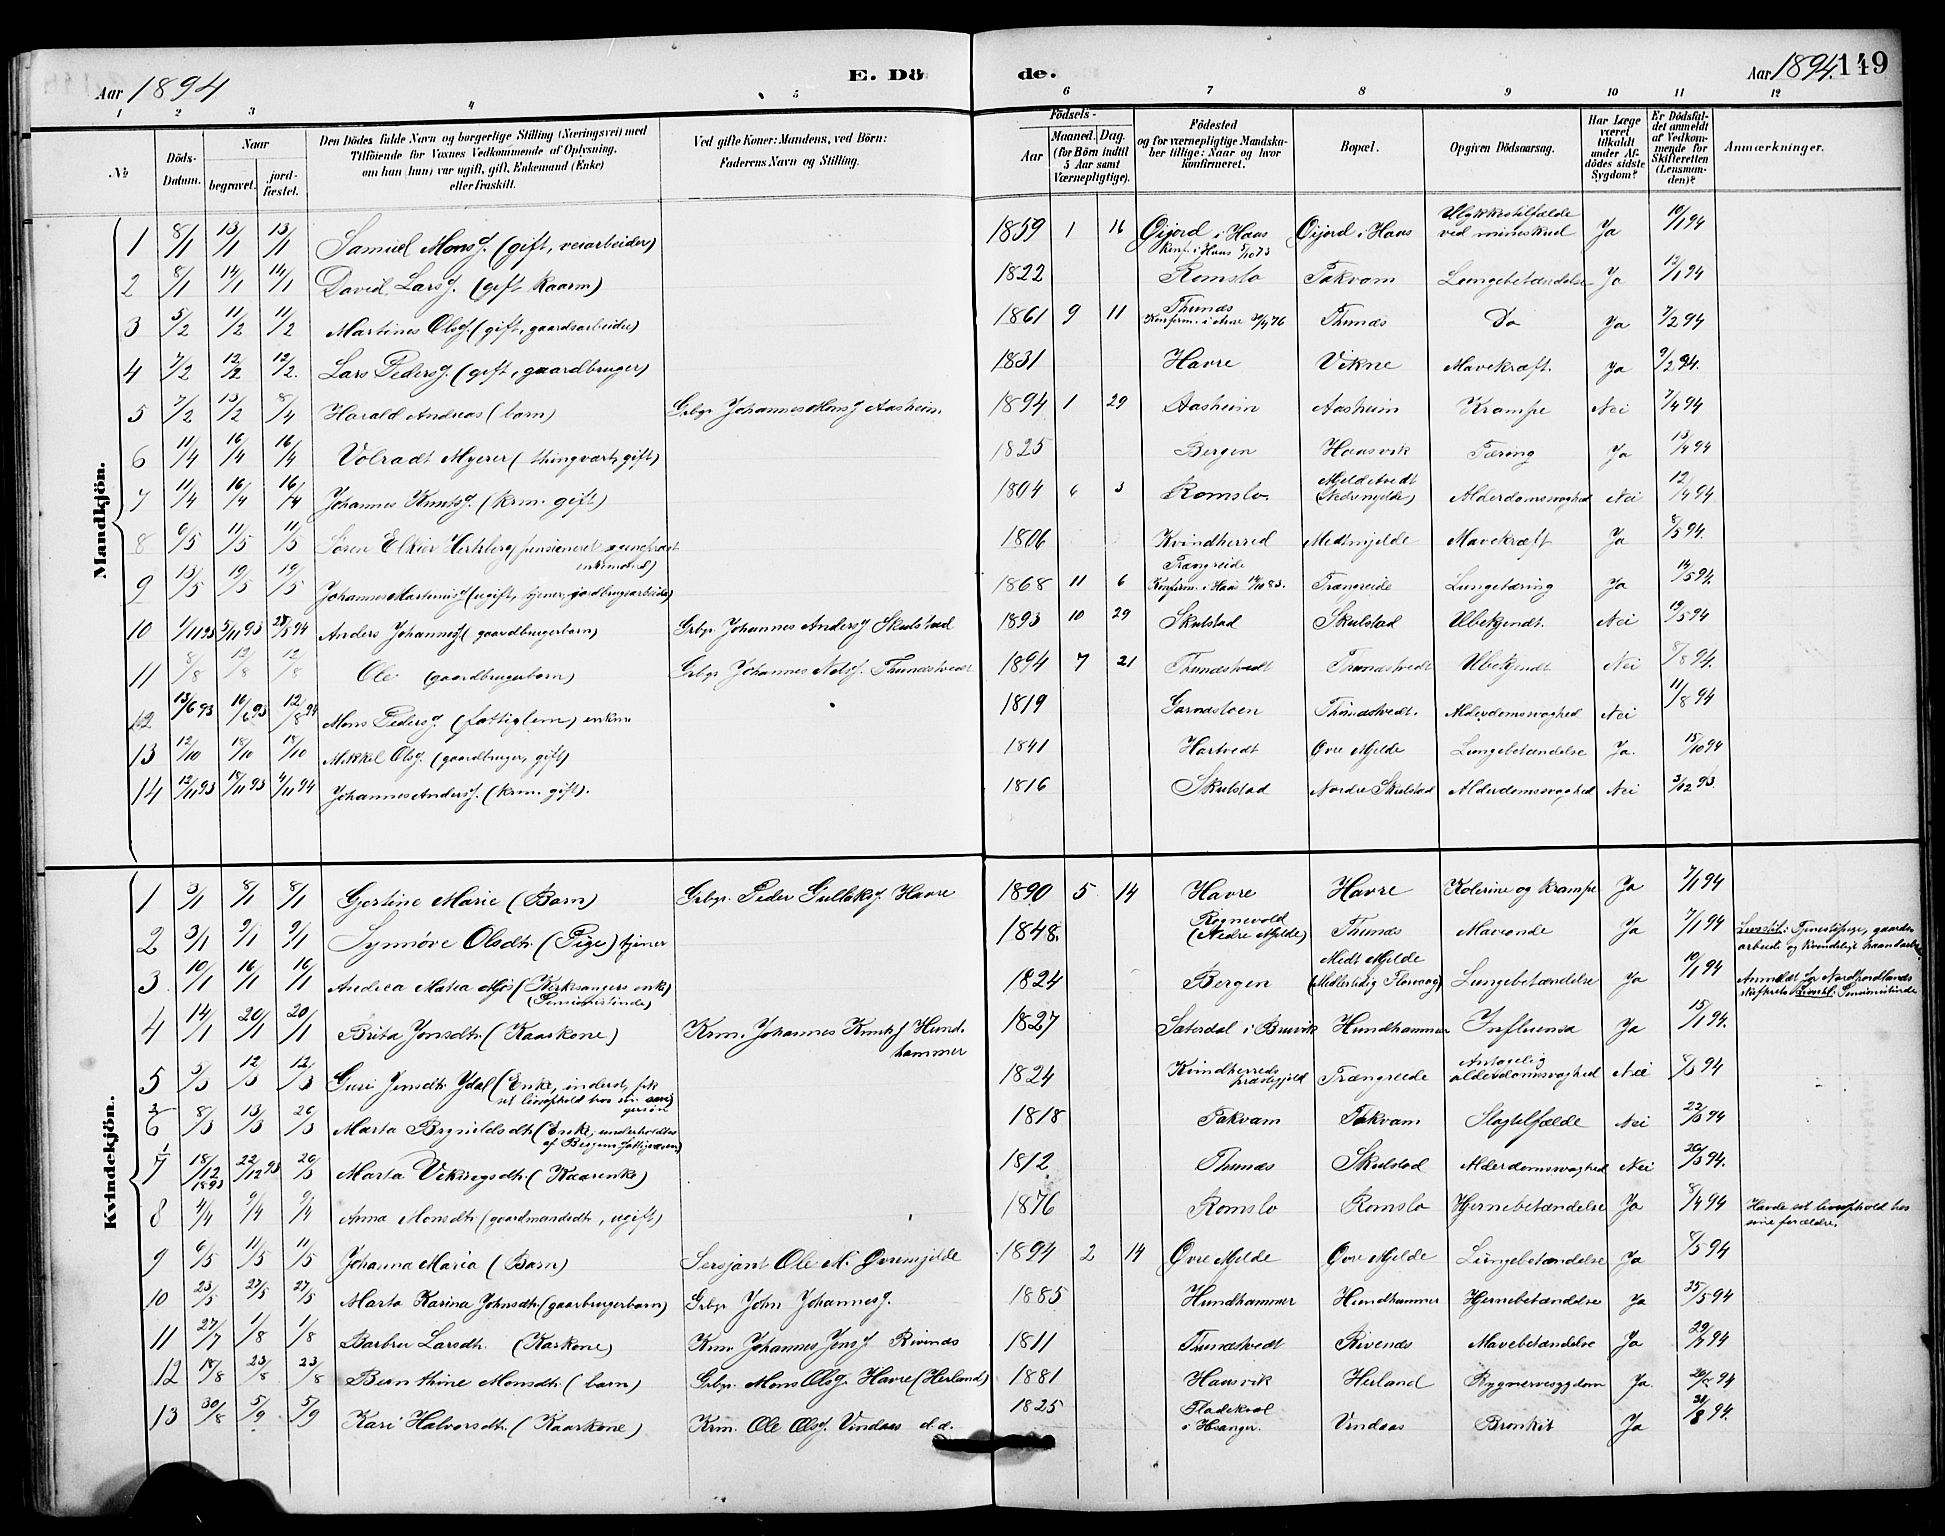 Aar 1894 E. Dö de. Aar 1894. 149
1 2 3 4 5 6 7 8 9 10 11 12
№ Döds-Datum. Naar begravet. jordfæstet. Den Dödes fulde Navn og borgerlige Stilling (Næringsvei) med Tilföiende for Voxnes Vedkommende af Oplysning, om han (hun) var ugift, gift, Enkemand (Enke) eller fraskilt. Ved gifte Koner: Mandens, ved Börn: Faderens Navn og Stilling. Födsels- Aar Maaned. Dag. (for Börn indtil 5 Aar samt Værnepligtige). Födested og for værnepligtige Mandskaber tillige: Naar og hvor konfirmeret. Bopæl. Opgiven Dödsaarsag. Har Læge været tilkaldt under Afdödes sidste Sygdom? Er Dödsfaldet anmeldt af Vedkommende for Skifteretten (Lensmanden)? Anmærkninger.
Mandkjön.
1 8/1 13/1 13/1 Samuel Monsø. (gift, veiarbeider) 1859 1 16 Øijord i Haus Konf. i Haus 5/10 73 Øijord i Haus Ulykkestilfælde ved mineskud Ja 10/1 94
2 8/1 14/1 14/1 David Larsø. (gift kaarm) 1822 Romslo Takvam Lungebetændelse Ja 12/1 94
3 5/2 11/2 11/2 Martines Olsø. (gift, gaardsarbeider) 1861 9 11 Thunæs Thunæs Do Ja 7/2 94
4 7/2 12/2 12/2. Lars Pedersø. (gift, gaardbruger) 1831 Havre Vikne Mavekræft. Ja 9/2 94.
5 7/2 13/2 8/4 Harald Andreas (barn) Grbgr Johannes Monsø Aasheim 1894 1 29 Aasheim Aasheim Krampe Nei 7/4 94
6 11/4 16/4 16/4 Volradt Myerer (thingvart, gift) 1825 Bergen Haasvik Tæring Ja 13/4 94
7 11/4 16/4 16/4 Johannes Knutsø. (krm. gift) 1804 6 3 Romslo. Mjeldetvedt (Nedremjelde) Alderdomssvaghed Nei 12/4 94
8 6/5 11/5 11/5 Søren Elkier Hertzberg pensioneret sogneprest enkemand) 1806 Kvindherred Medtmjelde Mavekræft Ja 8/5 94.
9 13/5 19/5 19/5 Johannes Martinusø (ugift, tjener, jordbrugsarbeider) 1868 11 6 Trængreide Konfirm. i Haus 14/10 83. Trængreide Lungetæring Ja 14/5 94.
10 1/11 93 5/11 93 28/5 94 Anders Johannesø (gaardbrugerbarn) Grbgr. Johannes Andersø Skulstad 1893 10 29 Skulstad Skulstad Ubekjendt. Nei 19/5 94
11 8/8 12/8 12/8 Ole (gaardbrugerbarn) Grbgr Johannes Nilsø. Thunæstvedt 1894 7 21 Thunæstvedt Thunæstvedt Ubekjendt Nei 8/8 94.
12 13/6 93 16/6 93 12/8 94 Mons Pedersø. (fattiglem) enkem 1819 Garnæstøen Thunæstvedt. Alderdomssvaghed Nei 11/8 94
13 12/10 18/10 18/10 Mikkel Olsø. (gaardbruger, gift) 1841 Hartvedt Øvre Mjelde Lungebetændelse Ja. 15/10 94
14 12/11 93 18/11 93 4/11 94 Johannes Andersø. (krm. gift). 1816 Skulstad Nordre Skulstad Alderdomssvaghed Nei 3/12 93.
Kvindekjön.
1 3/1 8/1 8/1 Gjertine Marie (Barn) Grbgr. Peder Gullaksø Havre 1890 5 14 Havre Havre Kolerine og Krampe Ja 7/1 94
2 3/1 9/1 9/1 Synnøve Olsdtr. (Pige) tjener 1848. Røgnevold (Nedre Mjelde) Thunæs Maveonde Ja 7/1 94 Livsstil.: Tjenestepige, gaardsarbeide og kvindeligt haandarbeide
3 10/1 16/1 16/1 Andrea Maria Mjøs (Kirkesangers enke) (Pensionistinde) 1824 Bergen Medt Mjelde (Midlertidig Florvaag) Lungebetændelse Ja 10/1 94 Anmeldt for Nordhordlands skifteret. Livsstil.: Pensionistinde
4 14/1 20/1 20/1 Brita Jonsdtr. (Kaarkone) Krm. Johannes Knutsø Hundhammer 1827 Sæterdal i Bruvik Hundhammer Influensa Ja 15/1 94.
5 5/3 12/3 12/3 Guri Jensdtr. Ydal (Enke, inderst, fik sit livsophold hos sin svigersøn 1824 Kvindherreds præstegjeld Trængreide Antagelig alderdomssvaghed Nei 8/3 94
2/6 8/3 13/3 20/3 Marta Brynildsdtr. (Enke, underholdtes af Bergens fattigvæsen) 1818 Takvam Takvam Slagtilfælde Nei 22/3 94
1/7 18/12 1893 22/12 93 20/3 Marta Vikingsdtr. (Kaarenke) 1812 Thunæs Skulstad Alderdomssvaghed Nei 20/3 94.
8 4/4 9/4 9/4 Anna Monsdtr. (gaardmandsdtr., ugift) 1876 Romslo Romslo Hjernebetændelse Ja 8/4 94 Havde sit livsophold hos sine forældre.
9 6/5 11/5 11/5 Johanna Maria (Barn) Sersjant Ole M. Øvremjelde 1894 2 14 Øvre Mjelde Øvre Mjelde Lungebetændelse Ja 8/5 94
10 23/5 27/5 27/5 Marta Karina Johnsdtr. (gaarbrugerbarn) Grbgr. John Johannesø. 1885 Hundhammer Hundhammer Hjernebetændelse Ja 25/5 94
11 27/7 1/8 1/8 Barbru Larsdtr. (Kaarkone) Krm. Johannes Jonsø Rivenæs 1811 Thunæstvedt Rivenæs Mavebetændelse Ja 29/7 94
12 18/8 23/8 23/8 Bernthine Monsdtr. (barn) Grbgr. Mons Olsø. Havre (Herland) 1881 Haasvik Herland Rygmervssygdom Ja. 20/8 94
13 30/8 5/9 5/9 Kari Halvorsdtr. (Kaarkone) Krm. Ole Olsø. Vindaas d.d. 1825 Fladekval i Hosanger. Vindaas Bronkit Ja 30/8 94.